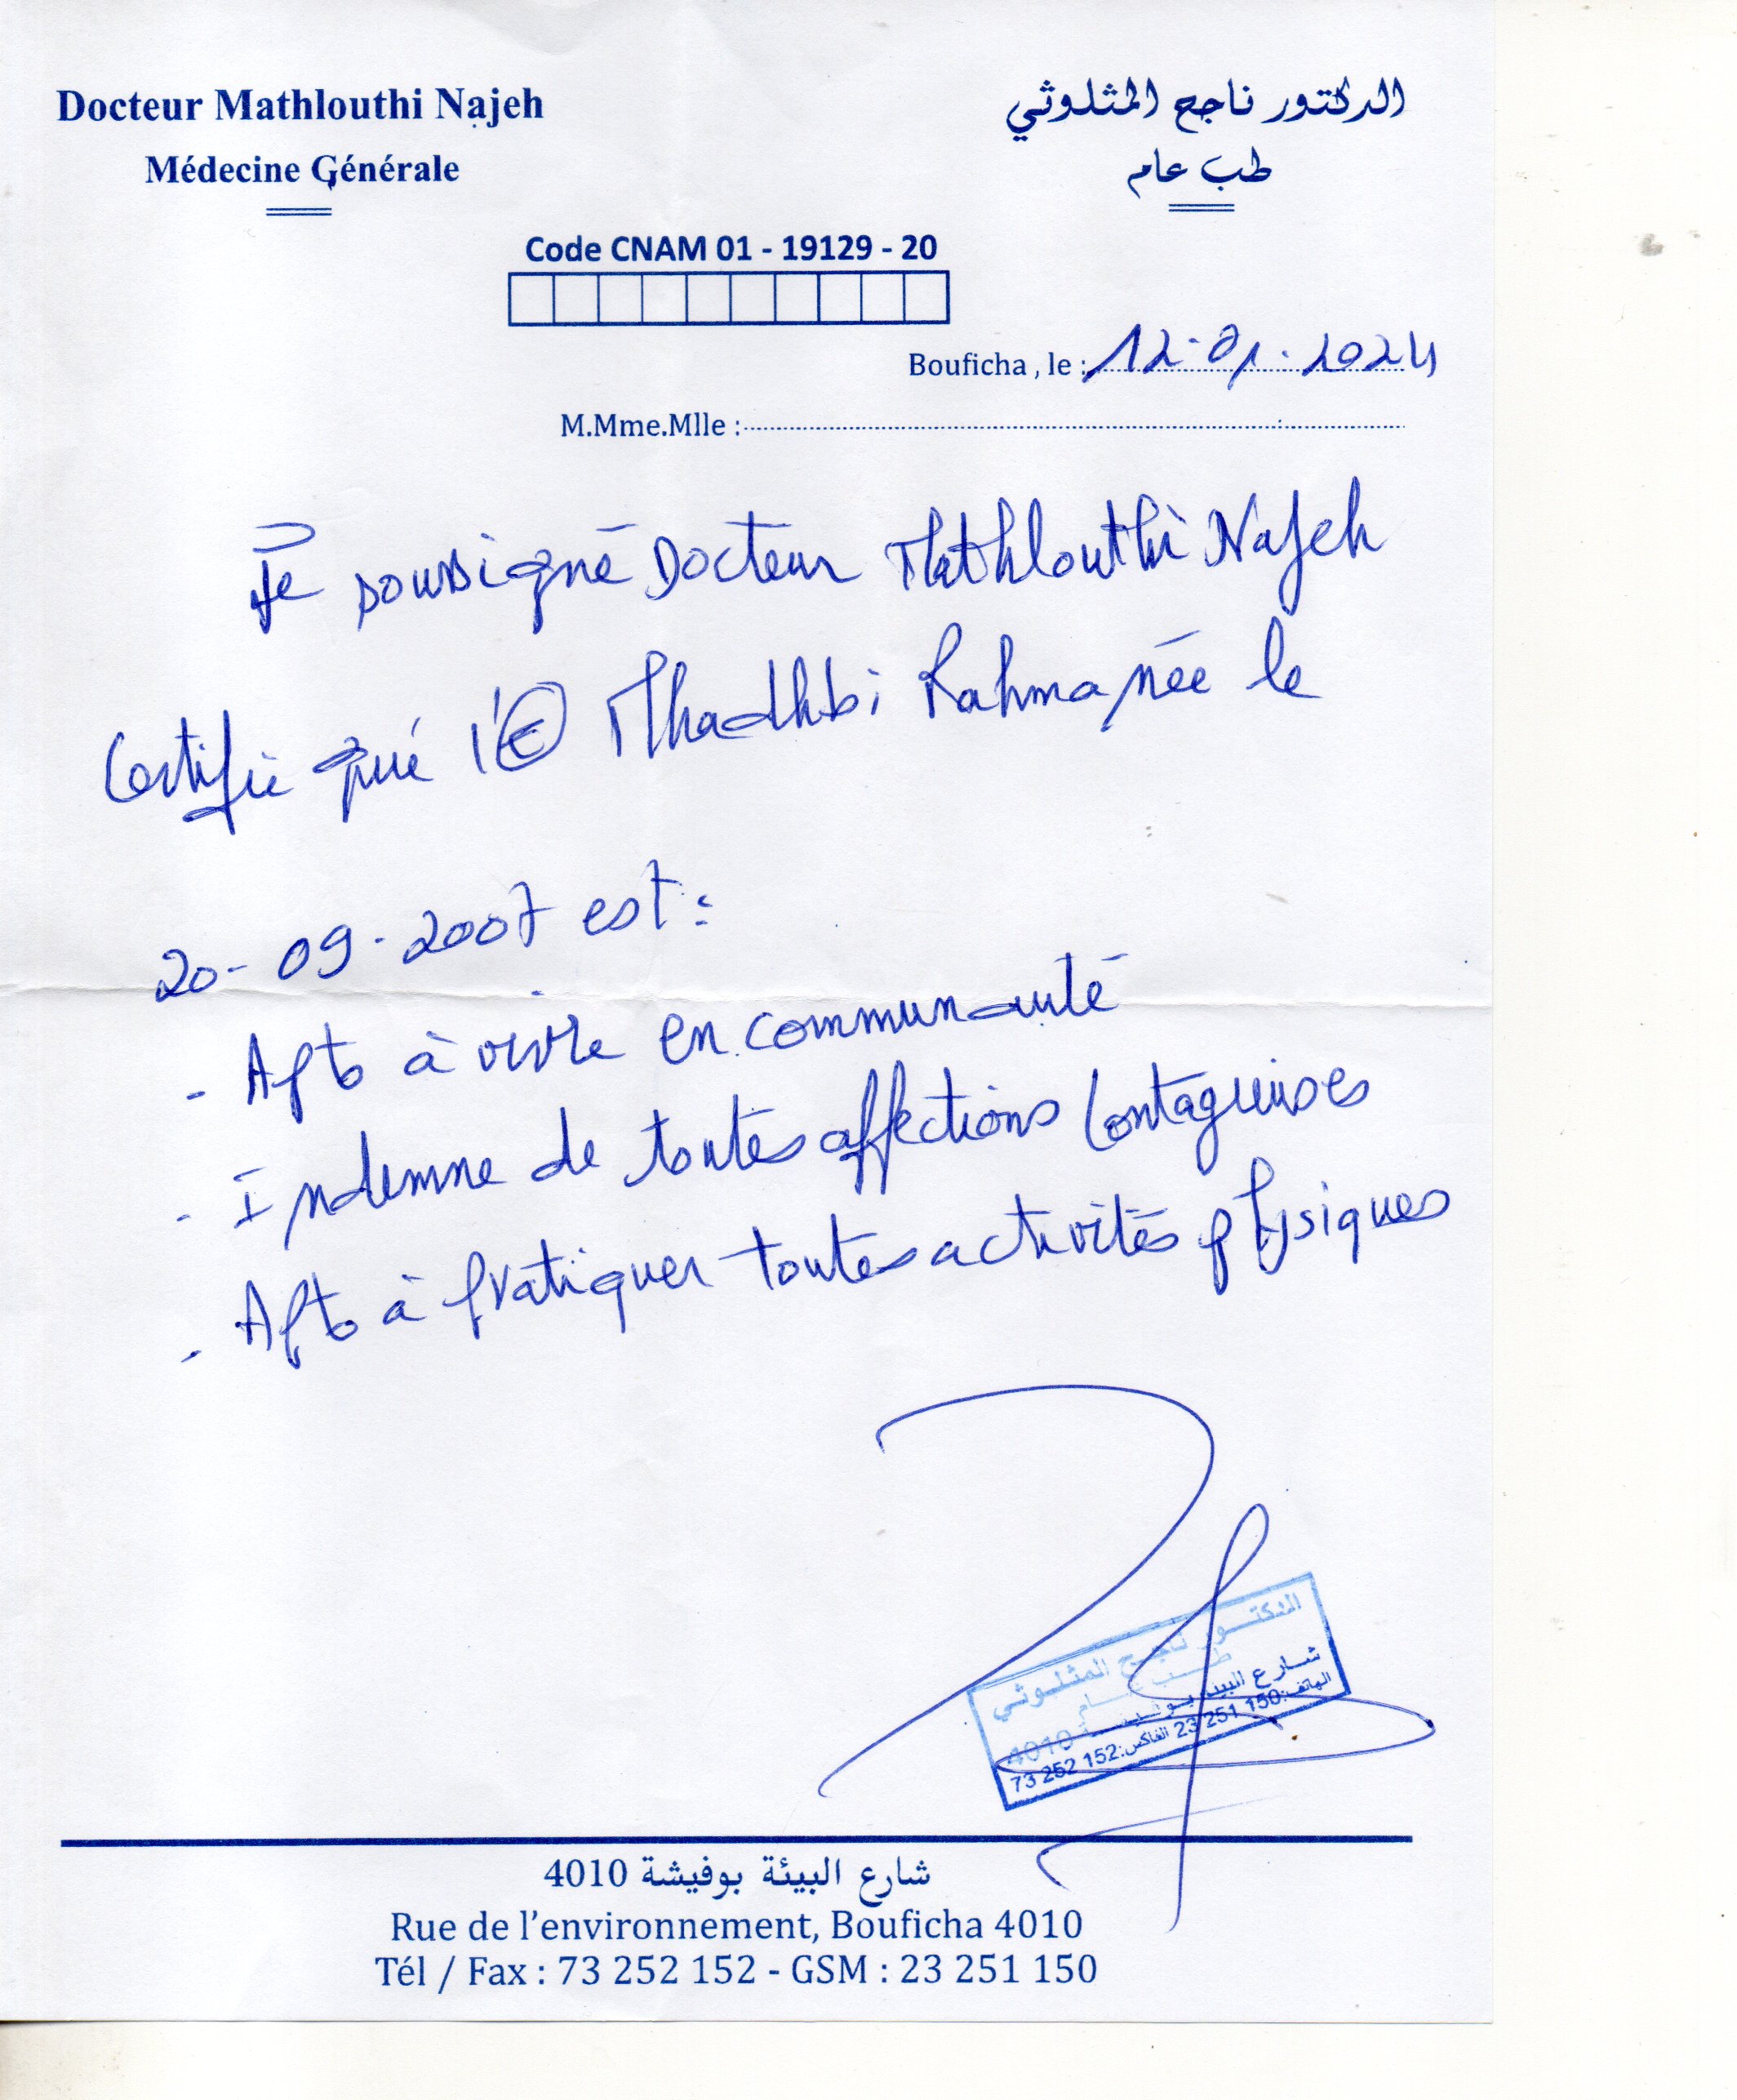 Docteur Mathlouthi Najeh
Médecine Générale
الدكتور ناجح المثلوثي
طب عام
Code CNAM 01 - 19129 - 20
Bouficha , le : 12.01.2024
M.Mme.Mlle :
Je soussigné Docteur Mathlouthi Najeh
Certifie que l'E Mhadhbi Rahma née le
20-09-2007 est :
- Apte à vivre en communauté
- Indemne de toutes affections contagieuses
- Apte à pratiquer toutes activités physiques
الدكتور ناجح المثلوثي
طب عام
شارع البيئة بوفيشة 4010
الهاتف: 23 251 150 الفاكس: 73 252 152
شارع البيئة بوفيشة 4010
Rue de l'environnement, Bouficha 4010
Tél / Fax : 73 252 152 - GSM : 23 251 150